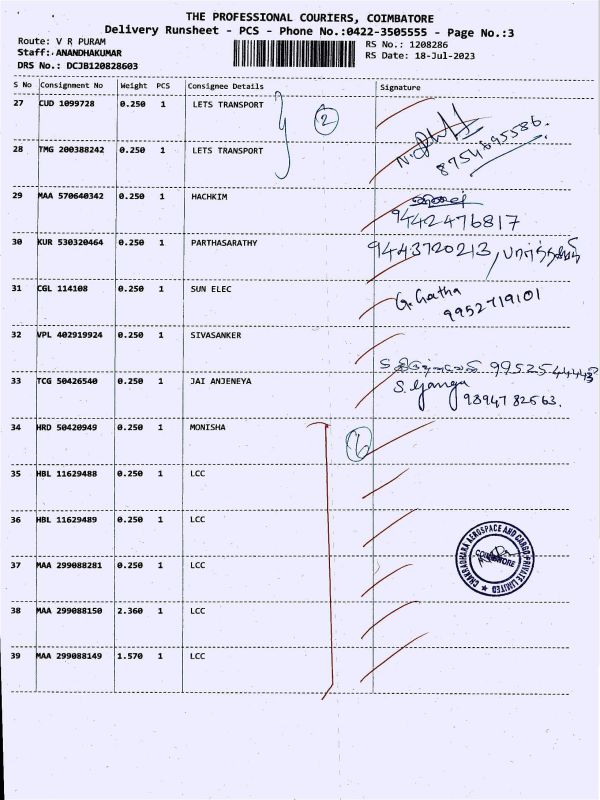 THE PROFESSIONAL COURIERS, COIMBATORE
Delivery Runsheet - PCS - Phone No.:0422-3505555 - Page No.:3
Route: V R PURAM
RS No.: 1208286
Staff: ANANDHAKUMAR
RS Date: 18-Jul-2023
DRS No.: DCJB120828603
S No Consignment No Weight PCS Consignee Details Signature
27 CUD 1099728 0.250 1 LETS TRANSPORT 2
8754695586.
28 TMG 200388242 0.250 1 LETS TRANSPORT
29 MAA 570640342 0.250 1 HACHKIM
9442476817
30 KUR 530320464 0.250 1 PARTHASARATHY 9443720213,
31 CGL 114108 0.250 1 SUN ELEC G. Gatha
9952719101
32 VPL 402919924 0.250 1 SIVASANKER
33 TCG 50426540 0.250 1 JAI ANJENEYA S. Ganga
9894782563.
34 HRD 50420949 0.250 1 MONISHA 6
35 HBL 11629488 0.250 1 LCC
36 HBL 11629489 0.250 1 LCC
37 MAA 299088281 0.250 1 LCC
CHAKRADHARA AEROSPACE AND CARGO PRIVATE LIMITED
COIMBATORE
38 MAA 299088150 2.360 1 LCC
39 MAA 299088149 1.570 1 LCC